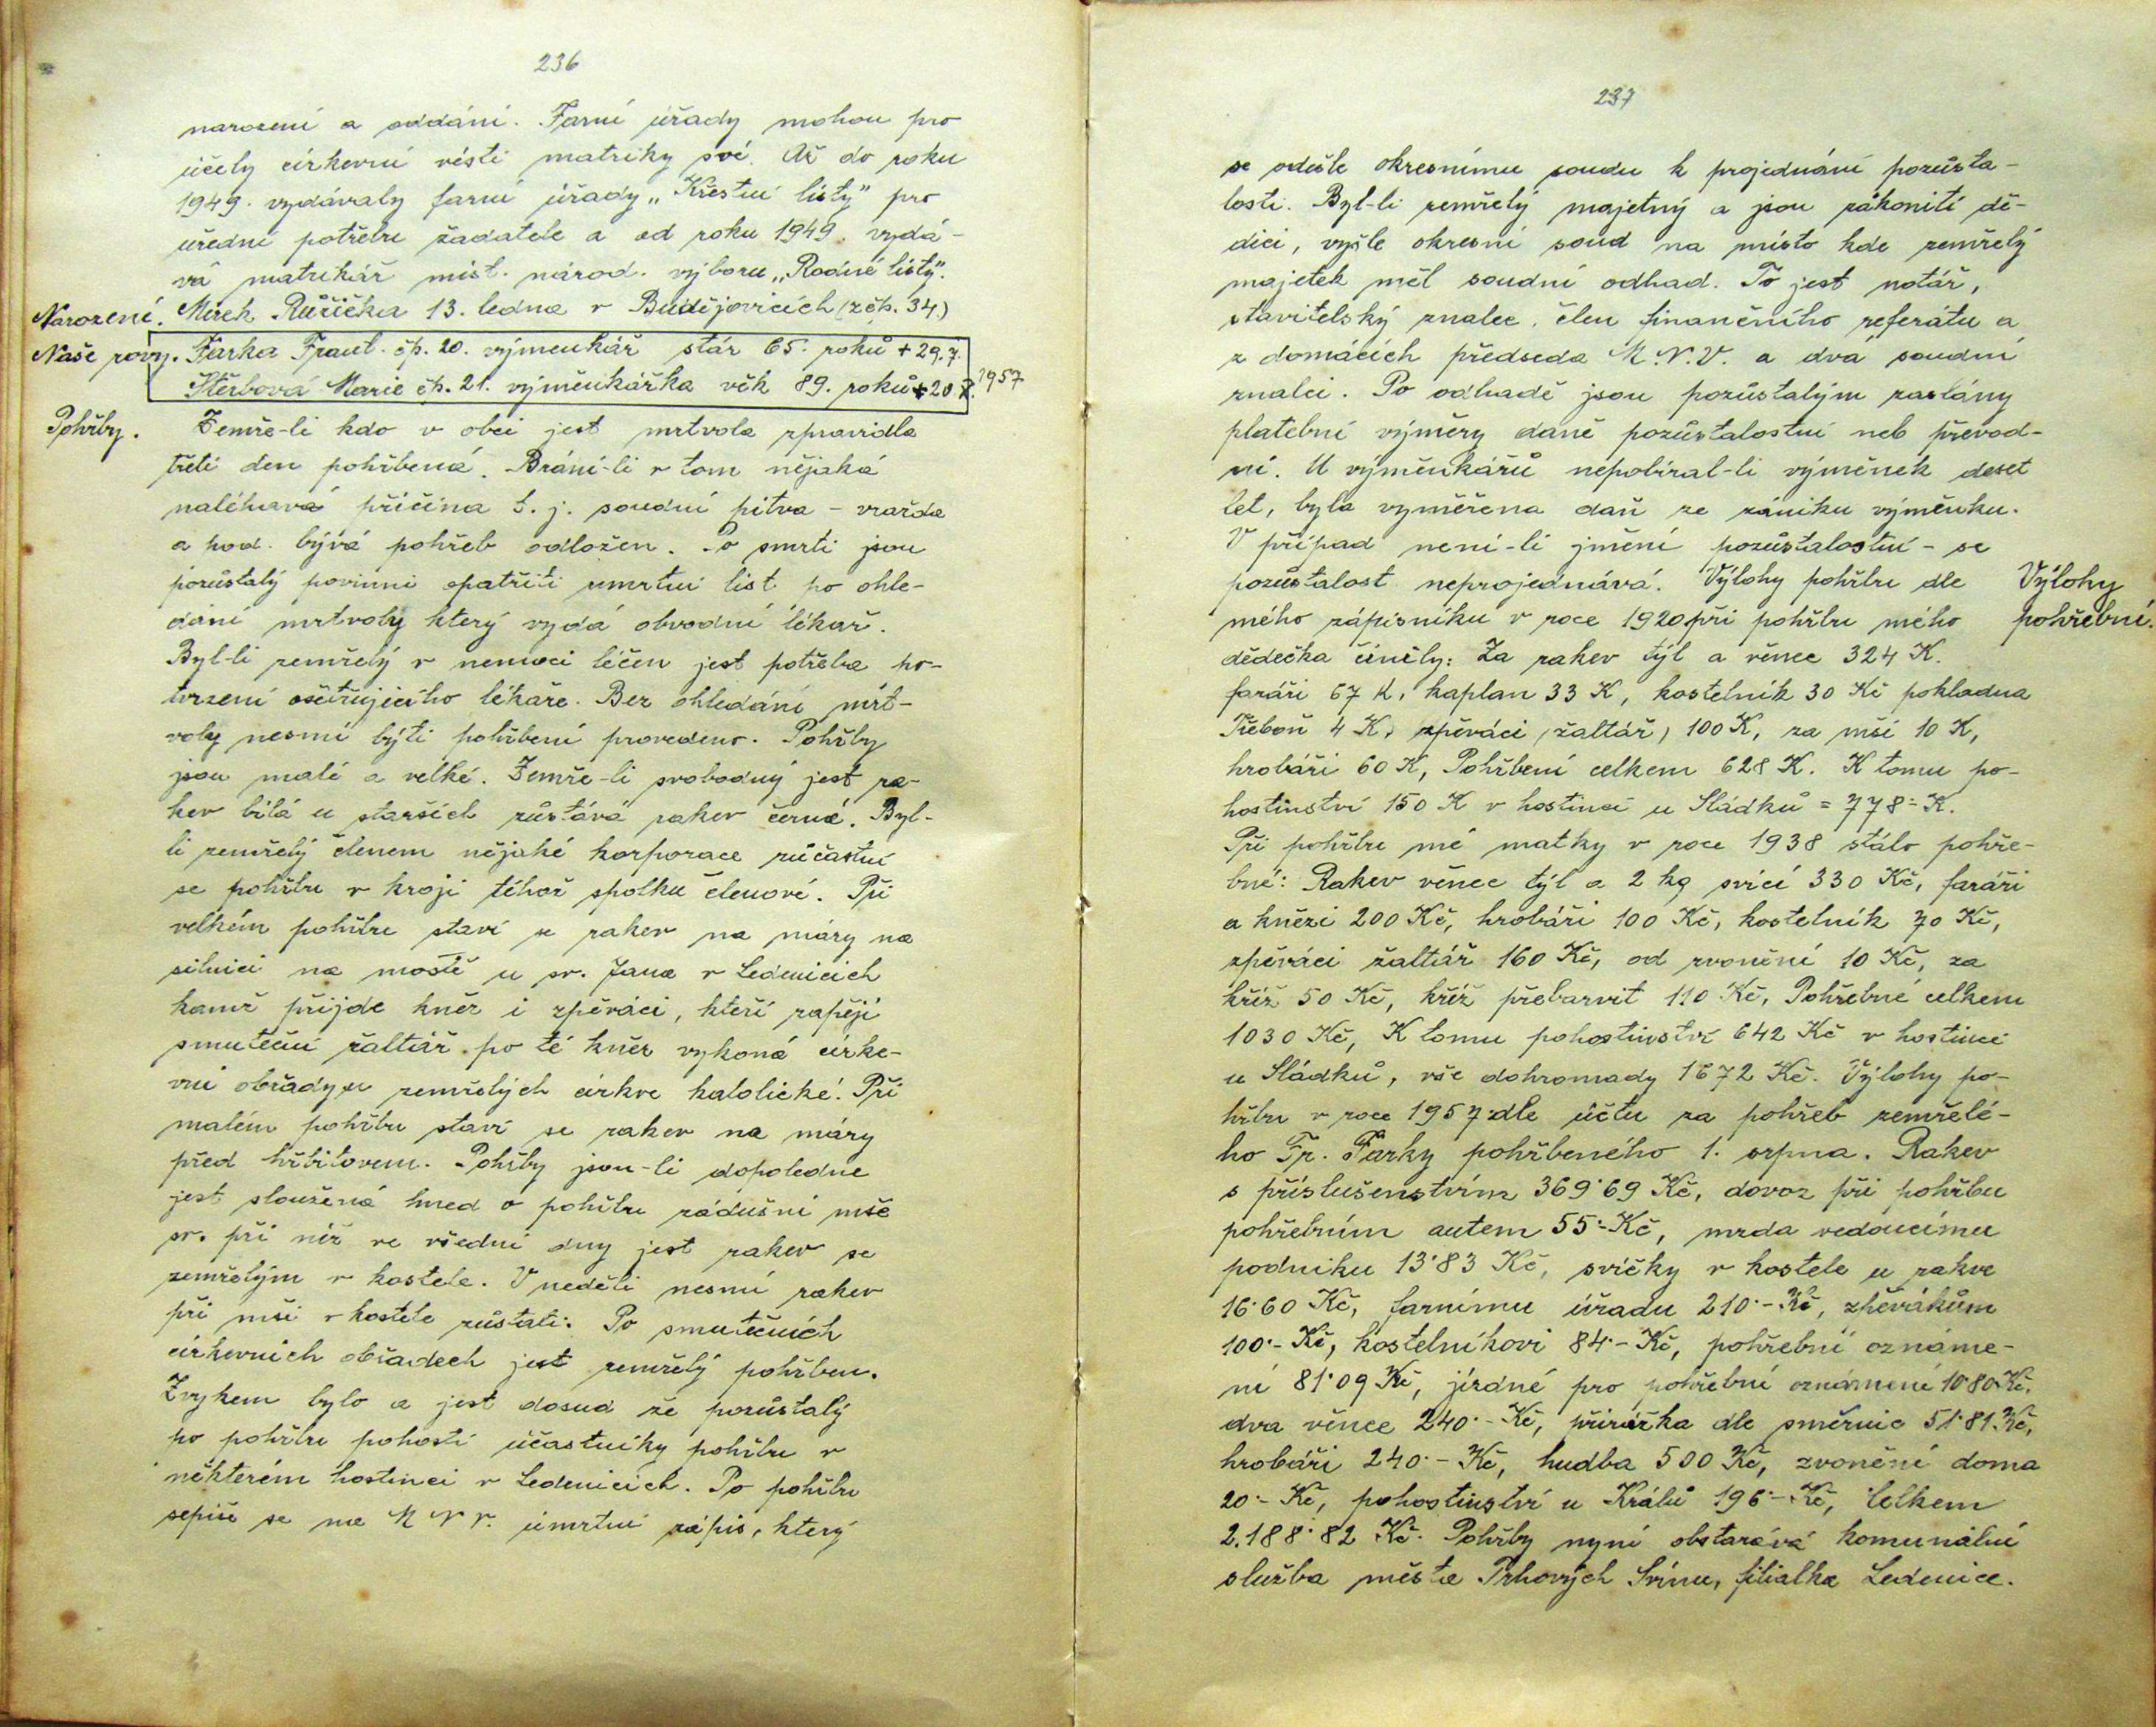 236
narození a oddání. Farní úřady mohou pro
účely církevní vésti matriky své. Až do roku
1949. vydávaly farní úřady „Křestní listy" pro
úřední potřebu žadatele a od roku 1949. vydá-
vá matrikář míst. národ. výboru „Rodné listy".
Narození. Mirek Růžička 13. ledna v Budějovicích (z čp. 34.)
Naše rovy. Farka Frant. čp. 20. výmenkář stár 65. roků + 29.7.
Štěrbová Marie čp. 21. výměnkářka věk 89. roků + 20. 1957
Pohřby. Zemře-li kdo v obci jest mrtvola zpravidla
třetí den pohřbená. Brání-li v tom nějaká
naléhavá příčina t. j. soudní pitva - vražda
a pod. bývá pohřeb odložen. Po smrti jsou
pozůstalý povinni opatřiti umrtní list po ohle-
dání mrtvoly který vydá obvodní lékař.
Byl-li zemřelý v nemoci léčen jest potřeba po-
tvrzení ošetřujícího lékaře. Bez ohledání mrt-
voly nesmí býti pohřbení provedeno. Pohřby
jsou malé a velké. Zemře-li svobodný jest ra-
kev bílá u starších zůstává rakev černá. Byl-
li zemřelý členem nějaké korporace zúčastní
se pohřbu v kroji téhož spolku členové. Při
velkém pohřbu staví se rakev na máry na
silnici na mostě u sv. Jana v Ledenicích
kamž přijde kněz i zpěváci, kteří zapějí
smuteční žaltář. po té kněz vykoná círke-
vní obřady u zemřelých církve katolické. Při
malém pohřbu staví se rakev na máry
před hřbitovem. Pohřby jsou-li dopoledne
jest sloužená hned o pohřbu zádušní mše
sv. při níž ve všední dny jest rakev se
zemřelým v kostele. V neděli nesmí rakev
při mši v kostele zůstati. Po smutečních
církevních obřadech jest zemřelý pohřben.
Zvykem bylo a jest dosud že pozůstalý
po pohřbu pohostí účastníky pohřbu v
některém hostinci v Ledenicích. Po pohřbu
sepíše se na M N V. úmrtní zápis, který
237
se odešle okresnímu soudu k projednání pozůsta-
losti. Byl-li zemřelý majetný a jsou zákonití dě-
dici, vyšle okresní soud na místo kde zemřelý
majetek měl soudní odhad. To jest notář,
stavitelský znalec, člen finančního referátu a
z domácích předseda M.N.V. a dvá soudní
znalci. Po odhadě jsou pozůstalým zaslány
platební výměry daně pozůstalostní neb převod-
ní. U výměnkářů nepobíral-li výměnek deset
let, byla vyměřena daň ze zániku výměnku.
V případ není-li jmění pozůstalostní - se
pozůstalost neprojednává. Výlohy pohřbu dle
Výlohy
mého zápisníku v roce 1920 při pohřbu mého
pohřební.
dědečka činěly: Za rakev týl a věnec 324 K.
faráři 67 K, kaplan 33 K, kostelník 30 Kč pokladna
Třeboň 4 K, zpěváci (žaltář) 100 K, za mši 10 K,
hrobáři 60 K, Pohřbení celkem 628 K. K tomu po-
hostinství 150 K v hostinci u Sládků = 778·- K.
Při pohřbu mé matky v roce 1938 stálo pohře-
bné: Rakev věnec týl a 2 kg svící 330 Kč, faráři
a knězi 200 Kč, hrobáři 100 Kč, kostelník 70 Kč,
zpěváci žaltář 160 Kč, od zvonění 10 Kč, za
kříž 50 Kč, kříž přebarvit 110 Kč, Pohřebné celkem
1030 Kč, K tomu pohostinství 642 Kč v hostinci
u Sládků, vše dohromady 1672 Kč. Výlohy po-
hřbu v roce 1957 dle účtu za pohřeb zemřelé-
ho Fr. Farky pohřbeného 1. srpna. Rakev
s příslušenstvím 369·69 Kč, dovoz při pohřbu
pohřebním autem 55·- Kč, mzda vedoucímu
podniku 13·83 Kč, svíčky v kostele u rakve
16·60 Kč, farnímu úřadu 210·- Kč, zpěvákům
100·- Kč, kostelníkovi 84·- Kč, pohřební oznáme-
ní 81·09 Kč, jízdné pro pohřební oznámení 10·80 Kč,
dva věnce 240·- Kč, přirážka dle směrnic 51·81 Kč,
hrobáři 240·- Kč, hudba 500 Kč, zvonění doma
20·- Kč, pohostinství u Králů 196·- Kč, Celkem
2.188·82 Kč. Pohřby nyní obstarává komunální
služba města Trhových Svinu, filialka Ledenice.